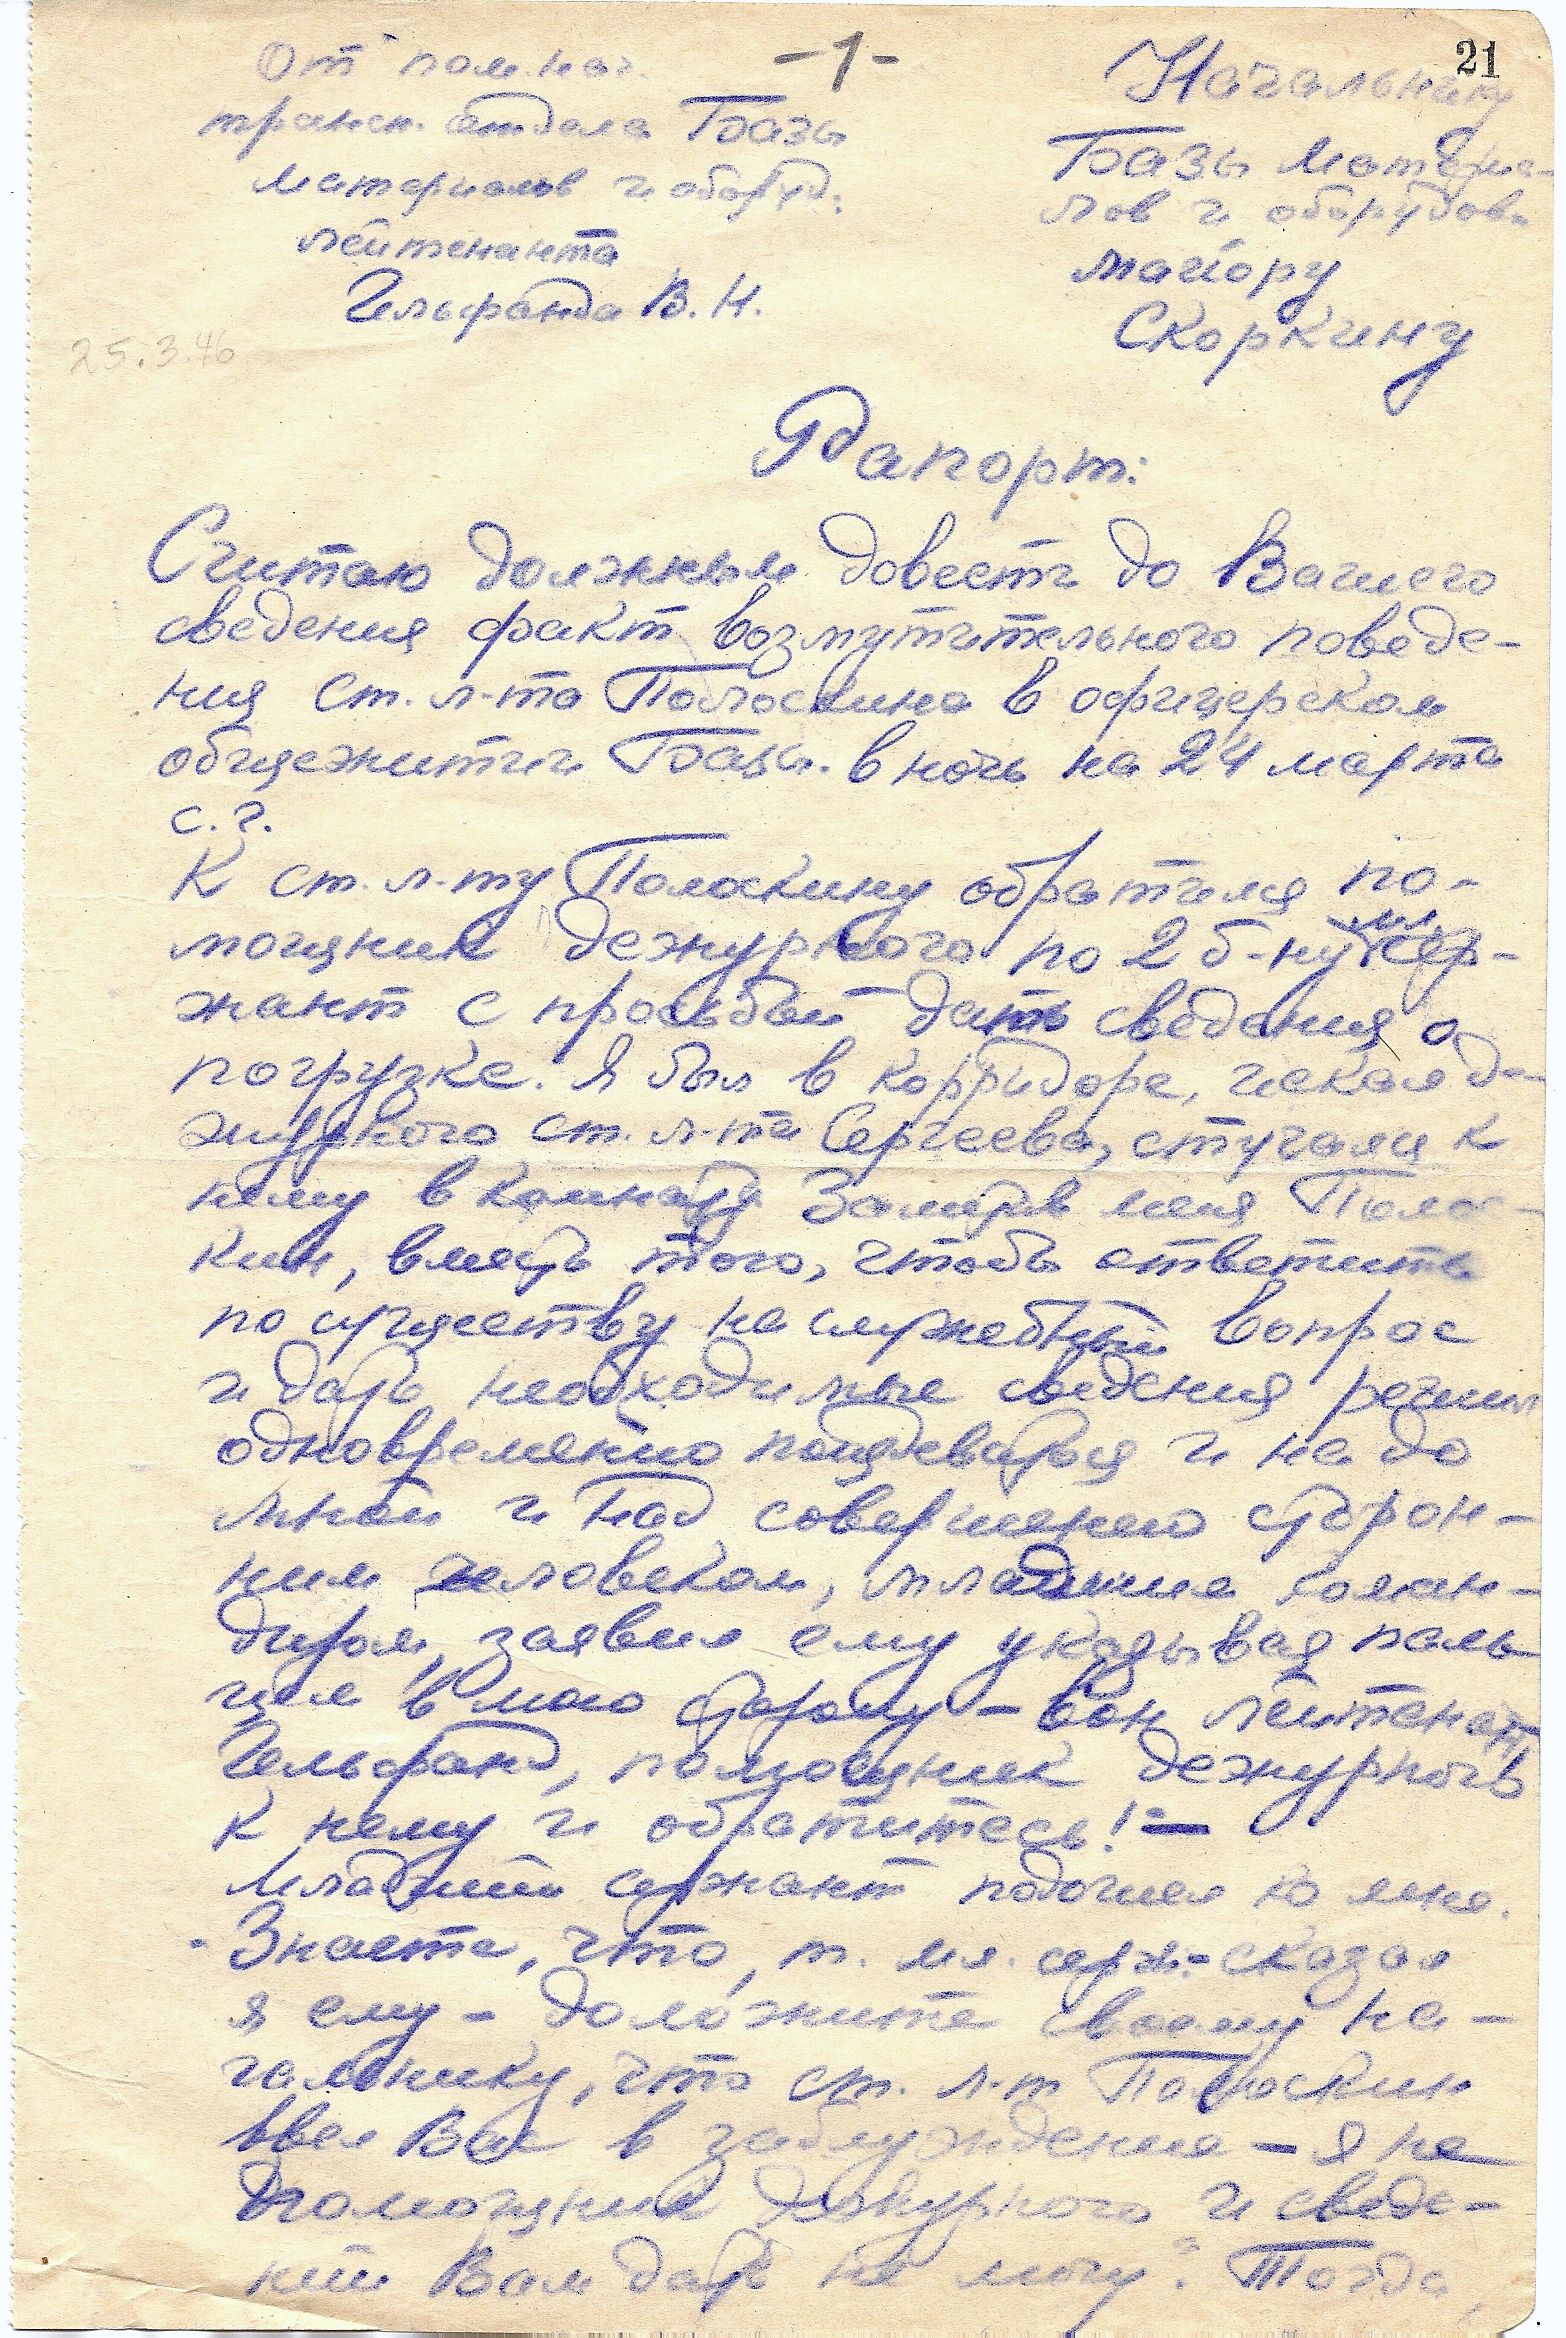 21
-1-
От пом. нач.
трансп. отдела Базы
материалов и оборуд.
лейтенанта
Гельфанда В. Н.
25.3.46
Начальнику
Базы материа-
лов и оборудов.
майору
Скоркину
Рапорт:
Считаю должным довести до Вашего
сведения факт возмутительного поведе-
ния ст. л-та Полоскина в офицерском
общежитии Базы. в ночь на 24 марта
с. г.
К ст. л-ту Полоскину обратился по-
мощник дежурного по 2 б-ну мл. сер-
жант с просьбой дать сведения о
погрузке. Я был в корридоре, искал де-
журного ст. л-та Сергеева, стучался к
нему в комнату. Заметив меня Полос-
кин, вместо того, чтобы ответить
по существу на служебный вопрос
и дать необходимые сведения решил
одновременно поиздеваться и надо
мной и над совершенно сторон-
ним человеком, младшим коман-
диром, заявил ему указывая паль-
цем в мою сторону – вон лейтенант
Гельфанд, помощник дежурного
к нему и обратитесь! –
Младший сержант подошел ко мне.
- Знаете, что, т. мл. серж. - сказал
я ему - доложите своему на-
чальнику, что ст. л-т Полоскин
ввел Вас в заблуждение – я не
помощник дежурного и сведе-
ний Вам дать не могу". Тогда,